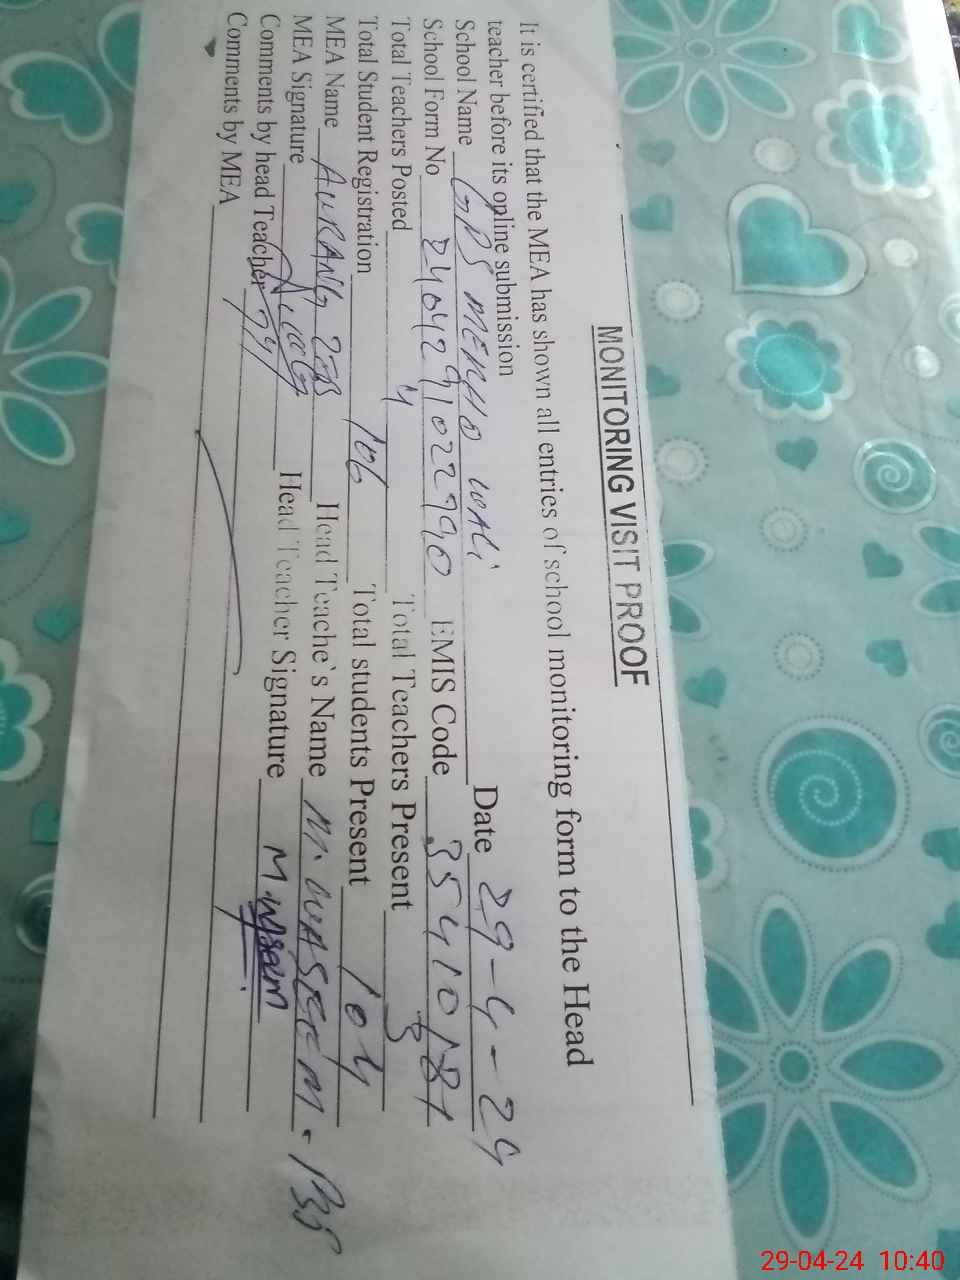 MONITORING VISIT PROOF
It is certified that the MEA has shown all entries of school monitoring form to the Head
teacher before its online submission
School Name GPS MEKHO WALI Date 29-4-24
School Form No 2404291022990 EMIS Code 35410181
Total Teachers Posted 4 Total Teachers Present 3
Total Student Registration 106 Total students Present 104
MEA Name AURANG ZEB Head Teache`s Name M. WASEEM.
MEA Signature Head Teacher Signature M Waseem
Comments by head Teacher
Comments by MEA
29-04-24 10:40